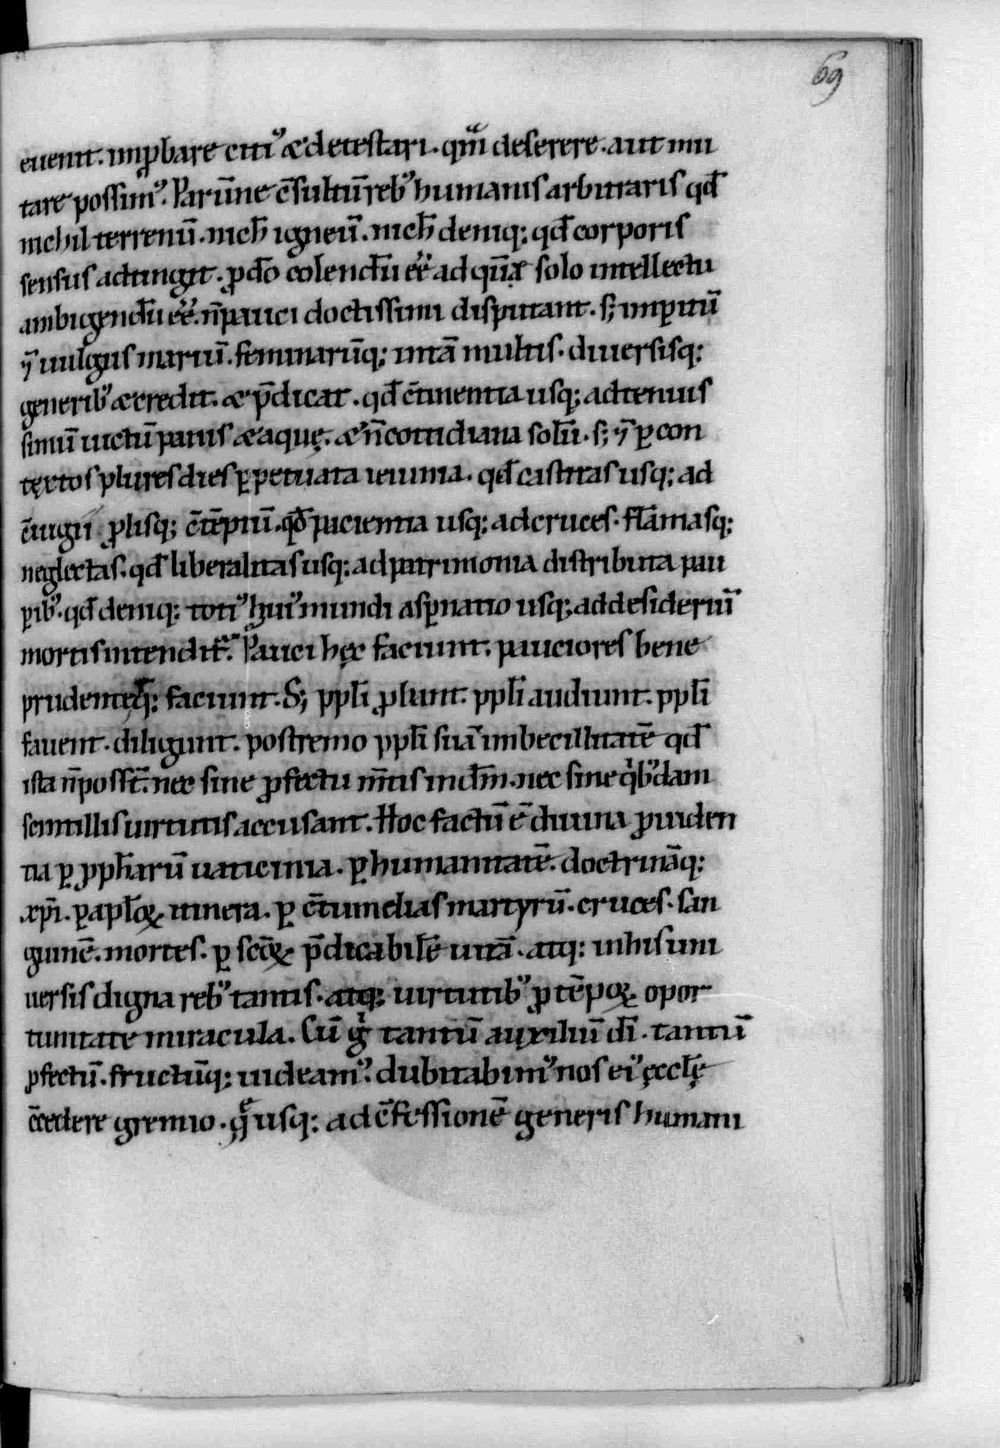 69
euenit. imꝓbare citiꝰ & detestari. qm̄ deserere. aut mu
tare possimꝰ. Parūne c̄sultū rebꝰ humanis arbitraris qd̄
nichil terrenū. nich̄ igneū. nich̄ deniq; qd̄ corporis
sensus adtingit. ꝓ d̄o colendū eē. ad quē solo intellectu
ambigendū eē. n̄ pauci doctissimi disputant. s; imꝑitū
&̄ uulgus mariū. feminarūq; in tā multis. diuersisq;
generibꝰ & credit. & p̄dicat. qd̄ c̄tinentia usq; ad tenuis
simū uictū panis & aquę. & n̄ cottidiana solū. s; &̄ ꝑ con
tęxtos plures dies ꝑpetuata ieiunia. qd̄ castitas usq; ad
c̄iugii ꝓlisq; c̄tēptū. qd̄ pacientia usq; ad cruces. flāmasq;
neglectas. qd̄ liberalitas usq; ad patrimonia distributa pau
ꝑibꝰ. qd̄ deniq; totiꝰ huiꝰ mundi asꝑnatio usq; ad desideriū
mortis intendit̄. Pauci hęc faciunt. pauciores bene
prudenterq; faciunt. S; ppl̄i ꝓbant. ppl̄i audiunt. ppl̄i
fauent. diligunt. postremo ppl̄i suā imbecillitatē qd̄
ista n̄ possīt. nec sine ꝓfectu m̄tis in dm̄. nec sine qibꝰdam
scintillis uirtutis accusant. Hoc factū ē diuina ꝓuiden
tia ꝑ ppħarū uaticinia. ꝑ humanitatē. doctrināq;
xpi̅. ꝑ apl̄oꝝ itinera. ꝑ c̄tumelias martyrū. cruces. san
guinē. mortes. ꝑ sc̄oꝝ p̄dicabilē uitā. atq; in his uni
uersis digna rebꝰ tantis. atq; uirtutibꝰ ꝓ tēpoꝝ opor
tunitate miracula. Cū g̊ tantū auxiliū dī. tantū
ꝓfectū. fructūq; uideamꝰ. dubitabimꝰ nos eiꝰ ęcclę̄
c̄cedere gremio. quę usq; ad c̄fessionē generis humani